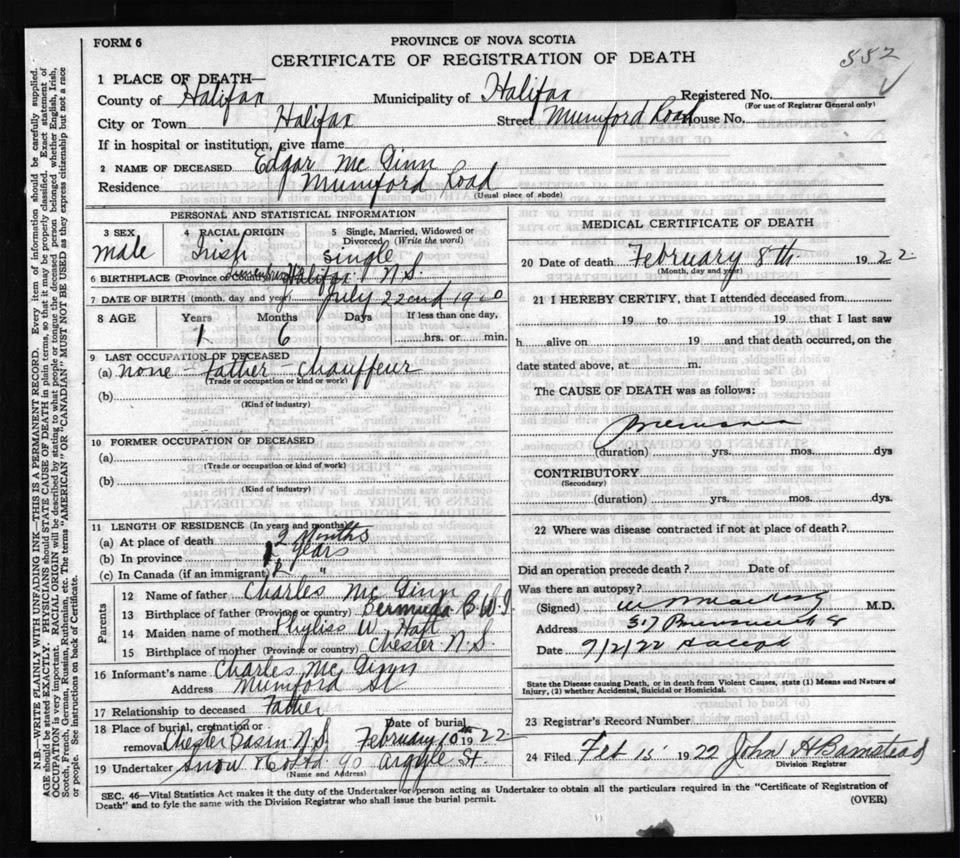 FORM 6
PROVINCE OF NOVA SCOTIA
CERTIFICATE OF REGISTRATION OF DEATH
552
1 PLACE OF DEATH—
County of Halifax Municipality of Halifax Registered No.
(For use of Registrar General only)
City or Town Halifax Street Mumford Road House No.
If in hospital or institution, give name
2 NAME OF DECEASED Edgar Mc Ginn
Residence Mumford Road
(Usual place of abode)
PERSONAL AND STATISTICAL INFORMATION
3 SEX male
4 RACIAL ORIGIN Irish
5 Single, Married, Widowed or Divorced (Write the word) single
6 BIRTHPLACE (Province or Country) Halifax N.S.
7 DATE OF BIRTH (month, day and year) July 22nd 1920
8 AGE Years Months Days If less than one day,
1 6 hrs. or min.
9 LAST OCCUPATION OF DECEASED
(a) none - Father - Chauffeur
(Trade or occupation or kind or work)
(b)
(Kind of industry)
10 FORMER OCCUPATION OF DECEASED
(a)
(Trade or occupation or kind of work)
(b)
(Kind of industry)
11 LENGTH OF RESIDENCE (In years and months)
(a) At place of death 2 Months
(b) In province years
(c) In Canada (if an immigrant) "
Parents
12 Name of father Charles Mc Ginn
13 Birthplace of father (Province or country) Bermuda B.W.I
14 Maiden name of mother Phyliss W. Hatt
15 Birthplace of mother (Province or country) Chester N.S
16 Informant's name Charles Mc Ginn
Address Mumford St
17 Relationship to deceased Father
18 Place of burial, cremation or removal Chester Basin N.S. Date of burial February 10th 1922
19 Undertaker Snow & Co Ltd. 90 Argyle St.
(Name and Address)
MEDICAL CERTIFICATE OF DEATH
20 Date of death February 8th 1922
(Month, day and year)
21 I HEREBY CERTIFY, that I attended deceased from
19 to 19 that I last saw
h alive on 19 and that death occurred, on the
date stated above, at m.
The CAUSE OF DEATH was as follows:
Pneumonia
(duration) yrs. mos. dys
CONTRIBUTORY
(Secondary)
(duration) yrs. mos. dys.
22 Where was disease contracted if not at place of death?
Did an operation precede death? Date of
Was there an autopsy?
(Signed) M.D.
Address
Date 9/2/22 Halifax
State the Disease causing Death, or in death from Violent Causes, state (1) Means and Nature of
Injury, (2) whether Accidental, Suicidal or Homicidal.
23 Registrar's Record Number
24 Filed Feb 15 1922 John H Barnstead
Division Registrar
SEC. 46—Vital Statistics Act makes it the duty of the Undertaker or person acting as Undertaker to obtain all the particulars required in the "Certificate of Registration of
Death" and to fyle the same with the Division Registrar who shall issue the burial permit.
(OVER)
N.B.—WRITE PLAINLY WITH UNFADING INK—THIS IS A PERMANENT RECORD. Every item of information should be carefully supplied.
AGE should be stated EXACTLY. PHYSICIANS should STATE CAUSE OF DEATH in plain terms, so that it may be properly classified. Exact statement of
OCCUPATION is very important. RACIAL ORIGIN will be described by stating to what people or tongue the deceased person belonged whether English, Irish,
Scotch, French, German, Russian, Ruthenian, etc. The terms "AMERICAN" OR "CANADIAN" MUST NOT BE USED as they express citizenship but not a race
or people. See instructions on back of Certificate.